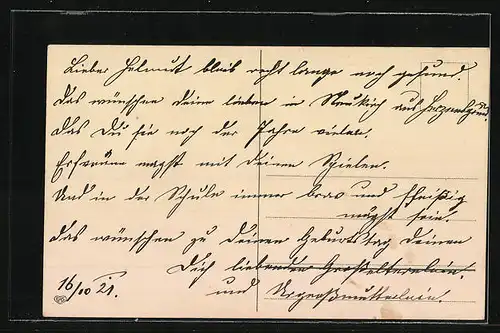 Lieber Helmut bleib recht lange noch gesund.
Das wünschen deine lieben in Neukirch aus Herzensgrund
das Du sie noch der Jahre vielen.
Erfreuen magst mit deinen Spielen.
Und in der Schule immer brav und fleißig
mögst sein.
Das wünschen zu deinen Geburtstag deinen
Dich liebenden Großelterlein.
und Urgroßmutterlein.
16/10 21.